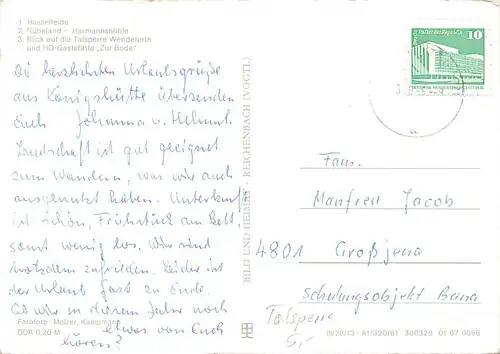 1. Hasselfelde
2. Rübeland - Hermannshöhle
3. Blick auf die Talsperre Wendefurth
und HO-Gaststätte „Zur Bode“
Die herzlichsten Urlaubsgrüße
aus Königshütte übersenden
Euch Johanna u. Helmut.
Landschaft ist gut geeignet
zum Wandern, was wir auch
ausgenutzt haben. Unterkunft
ist schön, Frühstück am Bett,
sonst wenig los. Wir sind
trotzdem zufrieden. Leider ist
der Urlaub fast zu Ende.
Ob wir in diesem Jahr noch
etwas von Euch
hören?
Farbfoto: Melzer, Kampmann
DDR 0,20 M
BILD UND HEIMAT REICHENBACH (VOGTL)
Palast der Republik
10
DDR
a
Fam.
Manfred Jacob
4801 Großjena
Schulungsobjekt
Talsperre
5,-
III/26/13 · A1/320/81 300320 01 07